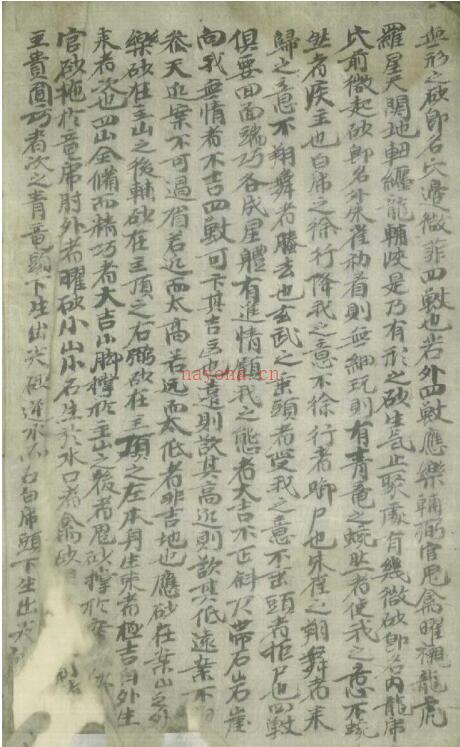 無形之砂卽名穴邊微菲四獸也若外四獸應樂輔弼官鬼禽曜襯龍虎
羅星天関地軸纏龍輔峽是乃有形之砂生气止聚處有幾微砂卽名內龍席
穴前微起砂卽名外朱雀初看則無細玩則有青竜之蜿然者使我之意不蜿
然者疾主也白席之徐行降我之意不徐行者啣尸也朱雀之翔舞者来
歸之意不翔舞者勝去也玄武之垂頭者受我之意不垂頭者拒尸也四獸
俱要回面端巧各成星體有進情顧我之態者大吉不正斜尺帶石岩崖
向我無情者不吉四獸可卞其吉 也遠則欲其高近則欲其低遠案不
忝天近案不可過眉若近而太高若远而太低者非吉地也應砂在案山之外
樂砂在主山之後輔砂在主頂之右弼砂在主頂之左本身生来者極吉自外生
来者次也四山全俻而精巧者大吉小脚撑於主山之後者鬼砂撑於
官砂拖於竜席肘外者曜砂小山小石生於水口者禽砂
主貴圓巧者次之青竜頭下生出尖 逆水 白席頭下生出尖
nayona.cn